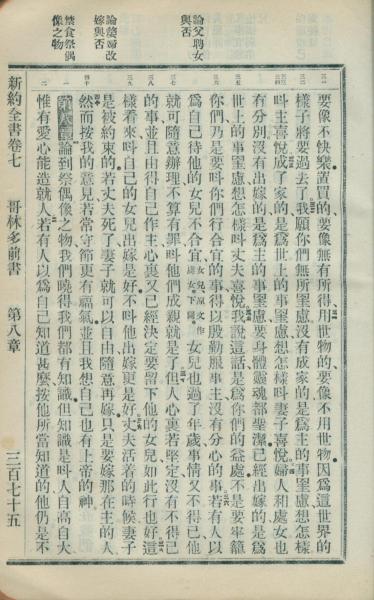 要像不快樂置買的要像無有所得用世物的要像不用世物因爲這世界的
樣子將要過去了我願你們無所罣慮沒有成家的是爲主的事罣慮想怎樣
呌主喜悅成了家的是爲世上的事罣慮想怎樣呌妻子喜悅婦人和處女也
有分別沒有出嫁的是爲主的事罣慮要身體靈魂都聖潔已經出嫁的是爲
世上的事罣慮想怎樣呌丈夫喜悅我說這話是爲你們的益處不是要牢籠
你們乃是要呌你們行合宜的事得以殷勤服事主沒有分心的事若有人以
爲自己待他的女兒不合宜女兒原文作處女下同女兒也過了年歲事情又不得已他
就可隨意辦理不算有罪呌他們成親就是了但人心裏若堅定沒有不得已
的事並且由得自己作主心裏又已經決定要留下他的女兒如此行也好這
樣看來呌自己的女兒出嫁是好不呌他出嫁更是好丈夫活着的時候妻子
是被約束的若丈夫死了妻子就可以自由隨意再嫁只是要嫁那在主的人
然而按我的意見若常守節更有福氣並且我想自己也有上帝的神
第八章論到祭偶像之物我們曉得我們都有知識但知識是呌人自高自大
惟有愛心能造就人若有人以爲自己知道甚麼按他所當知道的他仍是不
論父聘女
與否
論嫠婦改
嫁與否
禁食祭偶
像之物
新約全書卷七 哥林多前書 第八章 三百七十五